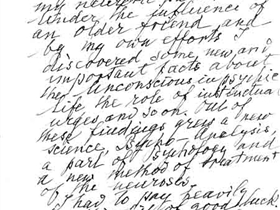 my
Under the influence of
an older friend and
by my own efforts I
discovered some new and
important facts about
the unconscious in psychic
life the role of instinctual
urges and so on. Out of
these findings grew a new
science, Psycho-Analysis,
a part of psychology and
a new method of treatment
of the neuroses.
I had to pay heavily
good luck.